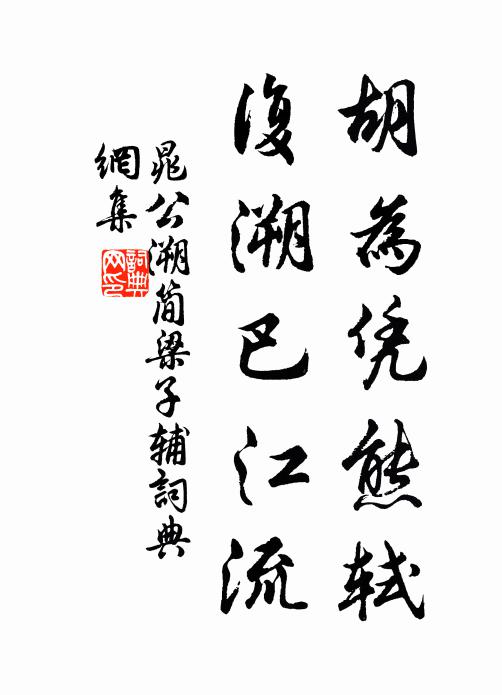 胡為凭熊軾
復溯巴江流
晁公溯简梁子辅詞典
網集
詞典網印